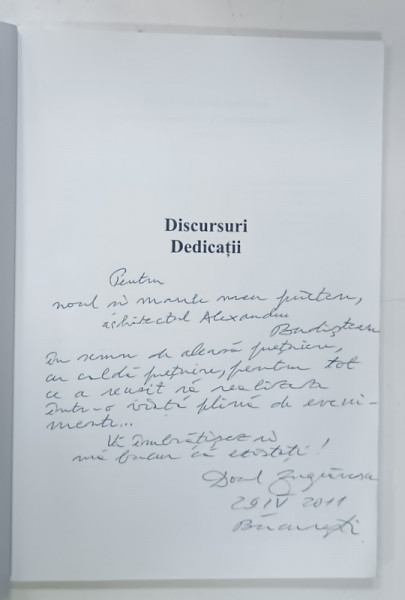 Discursuri
Dedicații
Pentru
noul și marele meu prieten,
arhitectul Alexandru
Budișteanu
În semn de aleasă prețuire,
cu caldă prețuire, pentru tot
ce a reușit să realizeze
într-o viață plină de eveni-
mente...
Vă îmbrățișez și
mă bucur că existați!
29 IV 2011
București